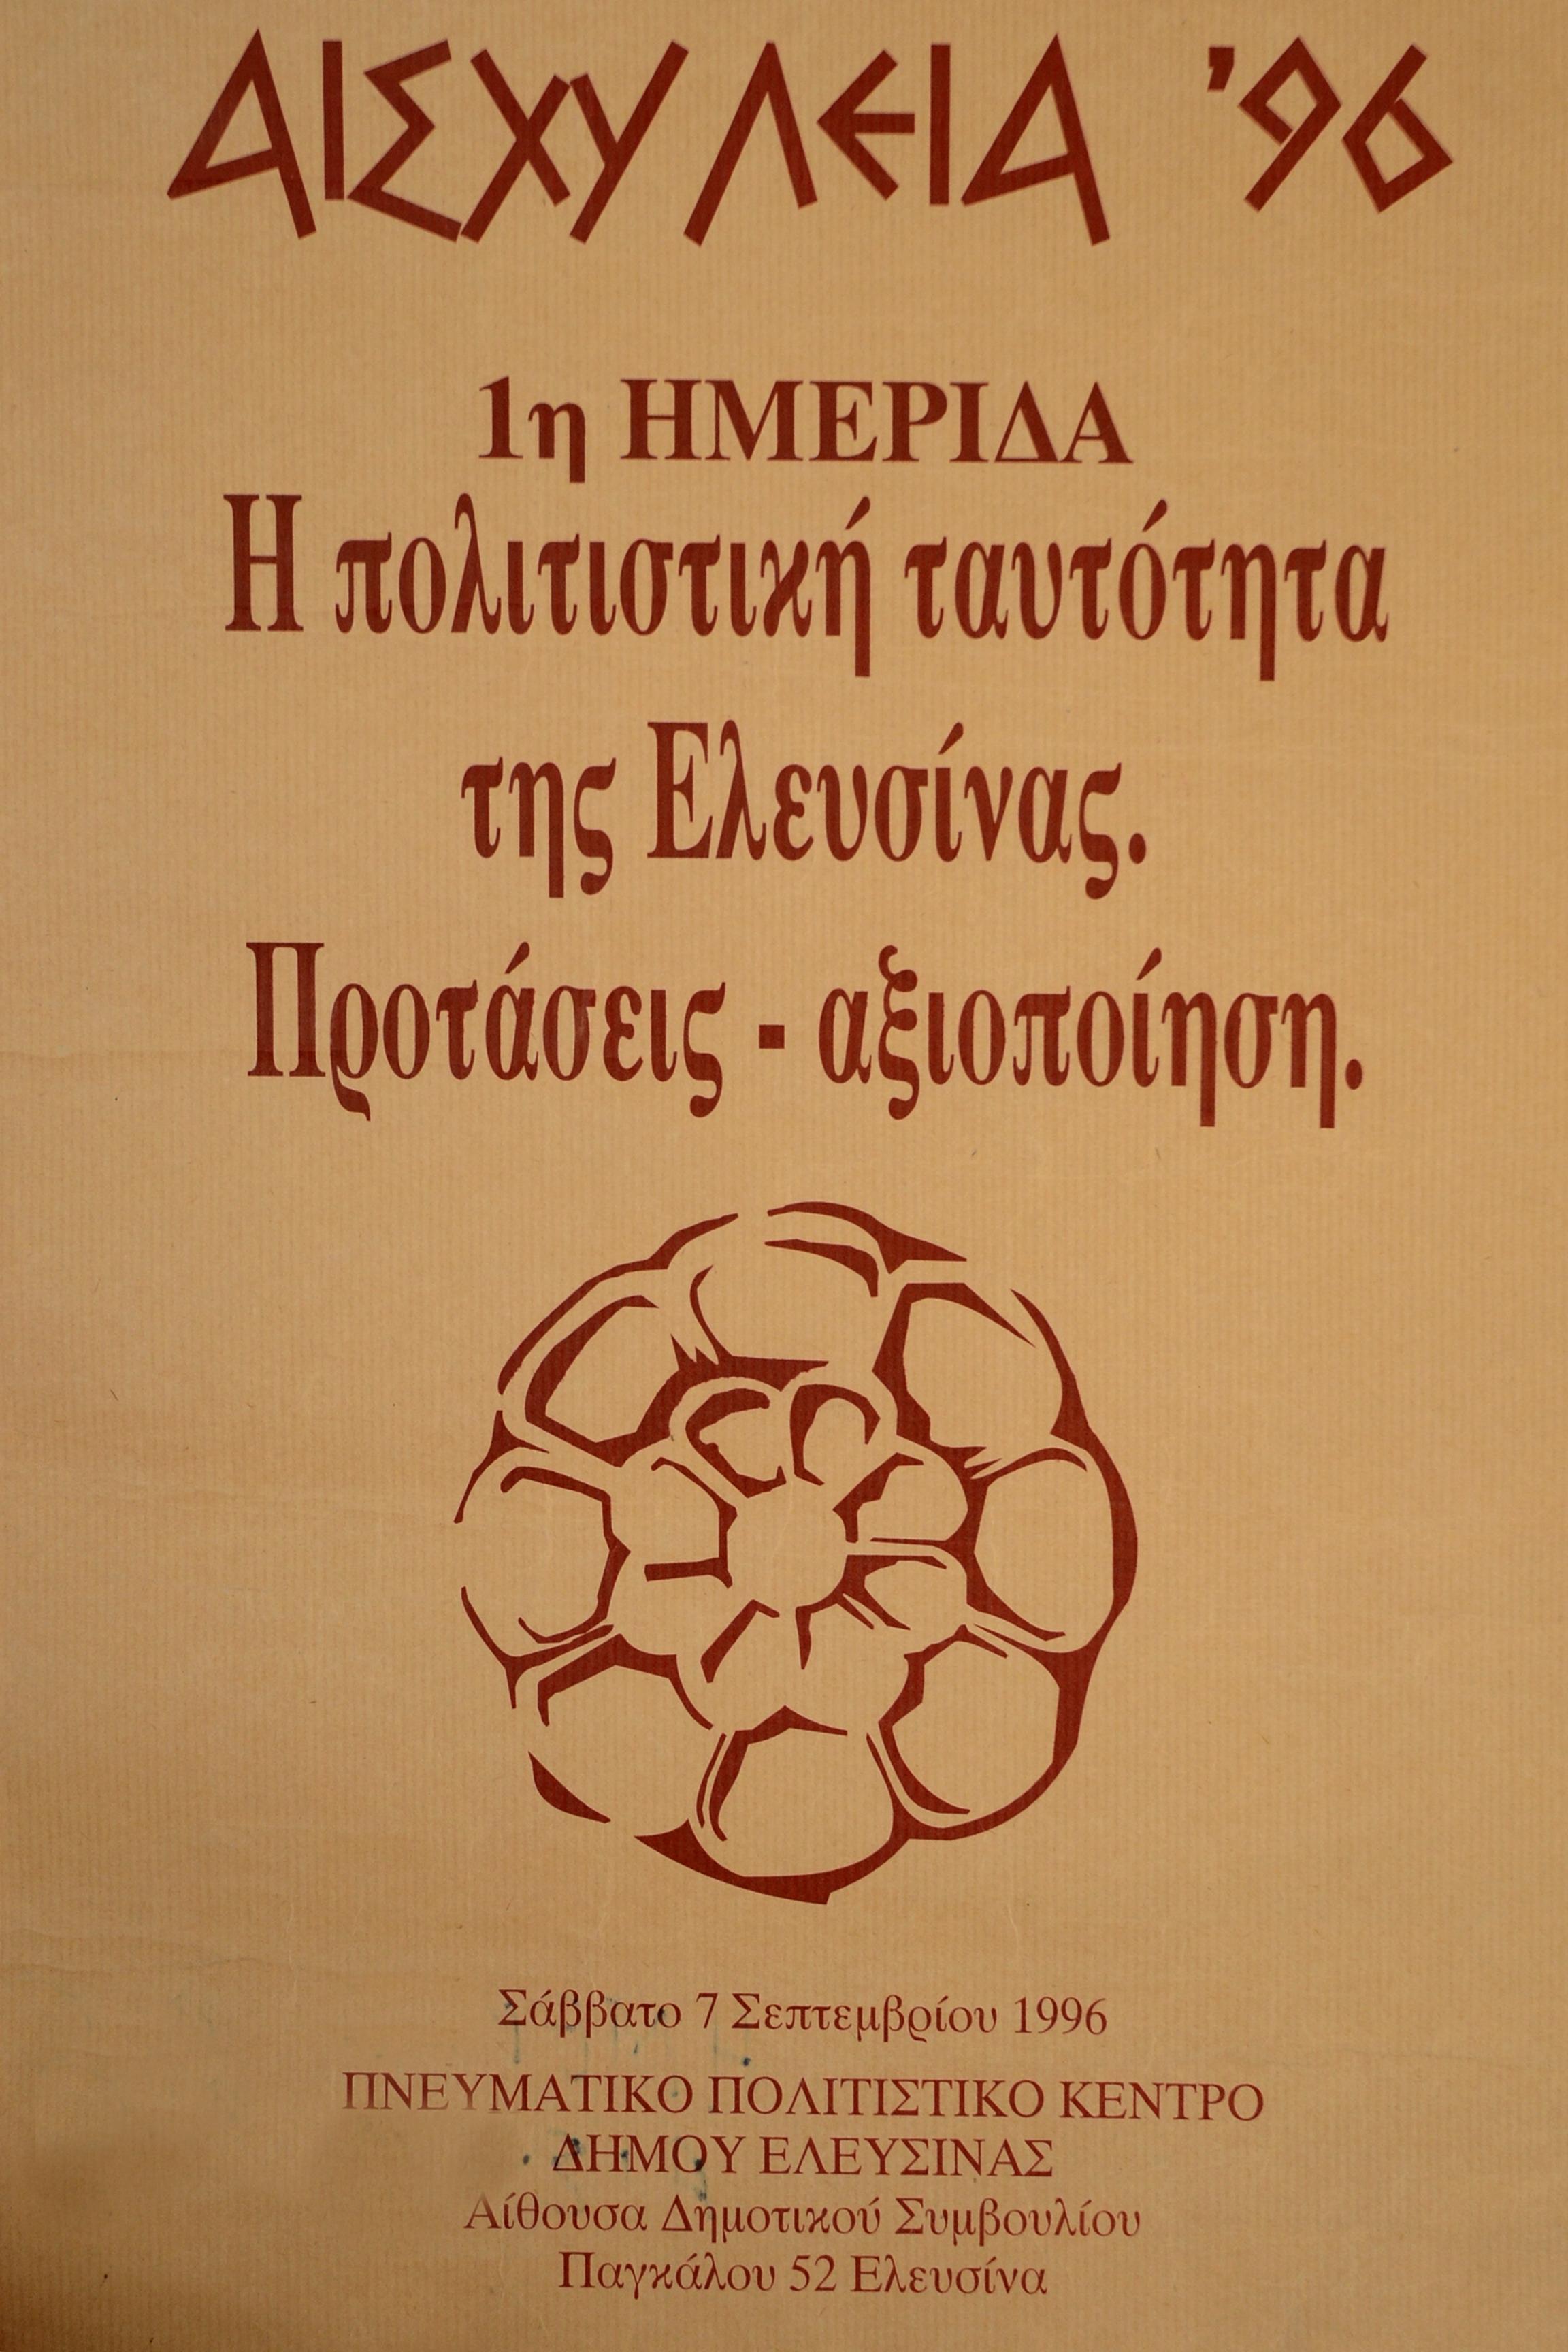 ΑΙΣΧΥΛΕΙΑ '96
1η ΗΜΕΡΙΔΑ
Η πολιτιστική ταυτότητα
της Ελευσίνας.
Προτάσεις - αξιοποίηση.
Σάββατο 7 Σεπτεμβρίου 1996
ΠΝΕΥΜΑΤΙΚΟ ΠΟΛΙΤΙΣΤΙΚΟ ΚΕΝΤΡΟ
ΔΗΜΟΥ ΕΛΕΥΣΙΝΑΣ
Αίθουσα Δημοτικού Συμβουλίου
Παγκάλου 52 Ελευσίνα